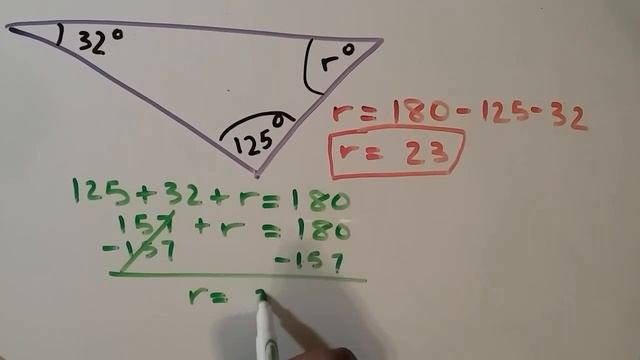 32°
r°
125°
r = 180 - 125 - 32
r = 23
125 + 32 + r = 180
157 + r = 180
-157 -157
r =